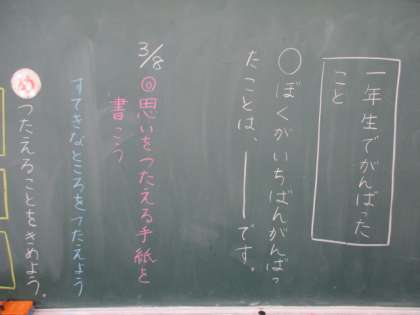 一年生でがんばった
こと
○ぼくがいちばんがんばっ
たことは、――です。
3/8 ◎思いをつたえる手紙を
書こう
すてきなところをつたえよう
め つたえることをきめよう。